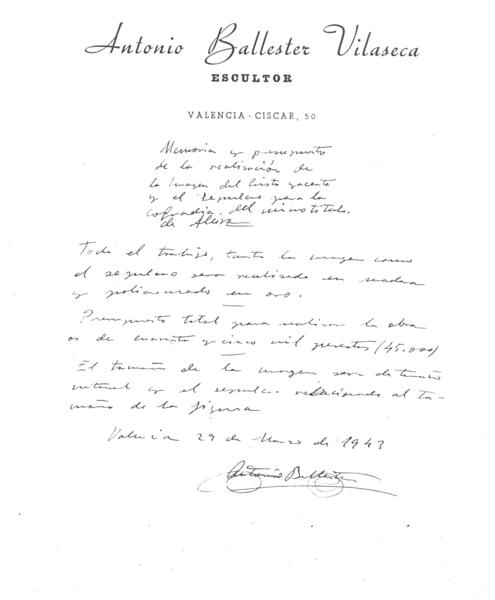 Antonio Ballester Vilaseca
ESCULTOR
VALENCIA - CISCAR, 50
Memoria y presupuesto
de la realización de
la Imagen del Cristo yacente
y el sepulcro para la
cofradia del mismo titulo
de
Todo el trabajo, tanto la imagen como
el sepulcro sera realizado en madera
y policromado en oro.
Presupuesto total para realizar la obra
es de cuarenta y cinco mil pesetas (45.000)
El tamaño de la imagen sera de tamaño
natural y el sepulcro relacionado al ta-
maño de la figura
Valencia 29 de Marzo de 1943
Antonio Ballester